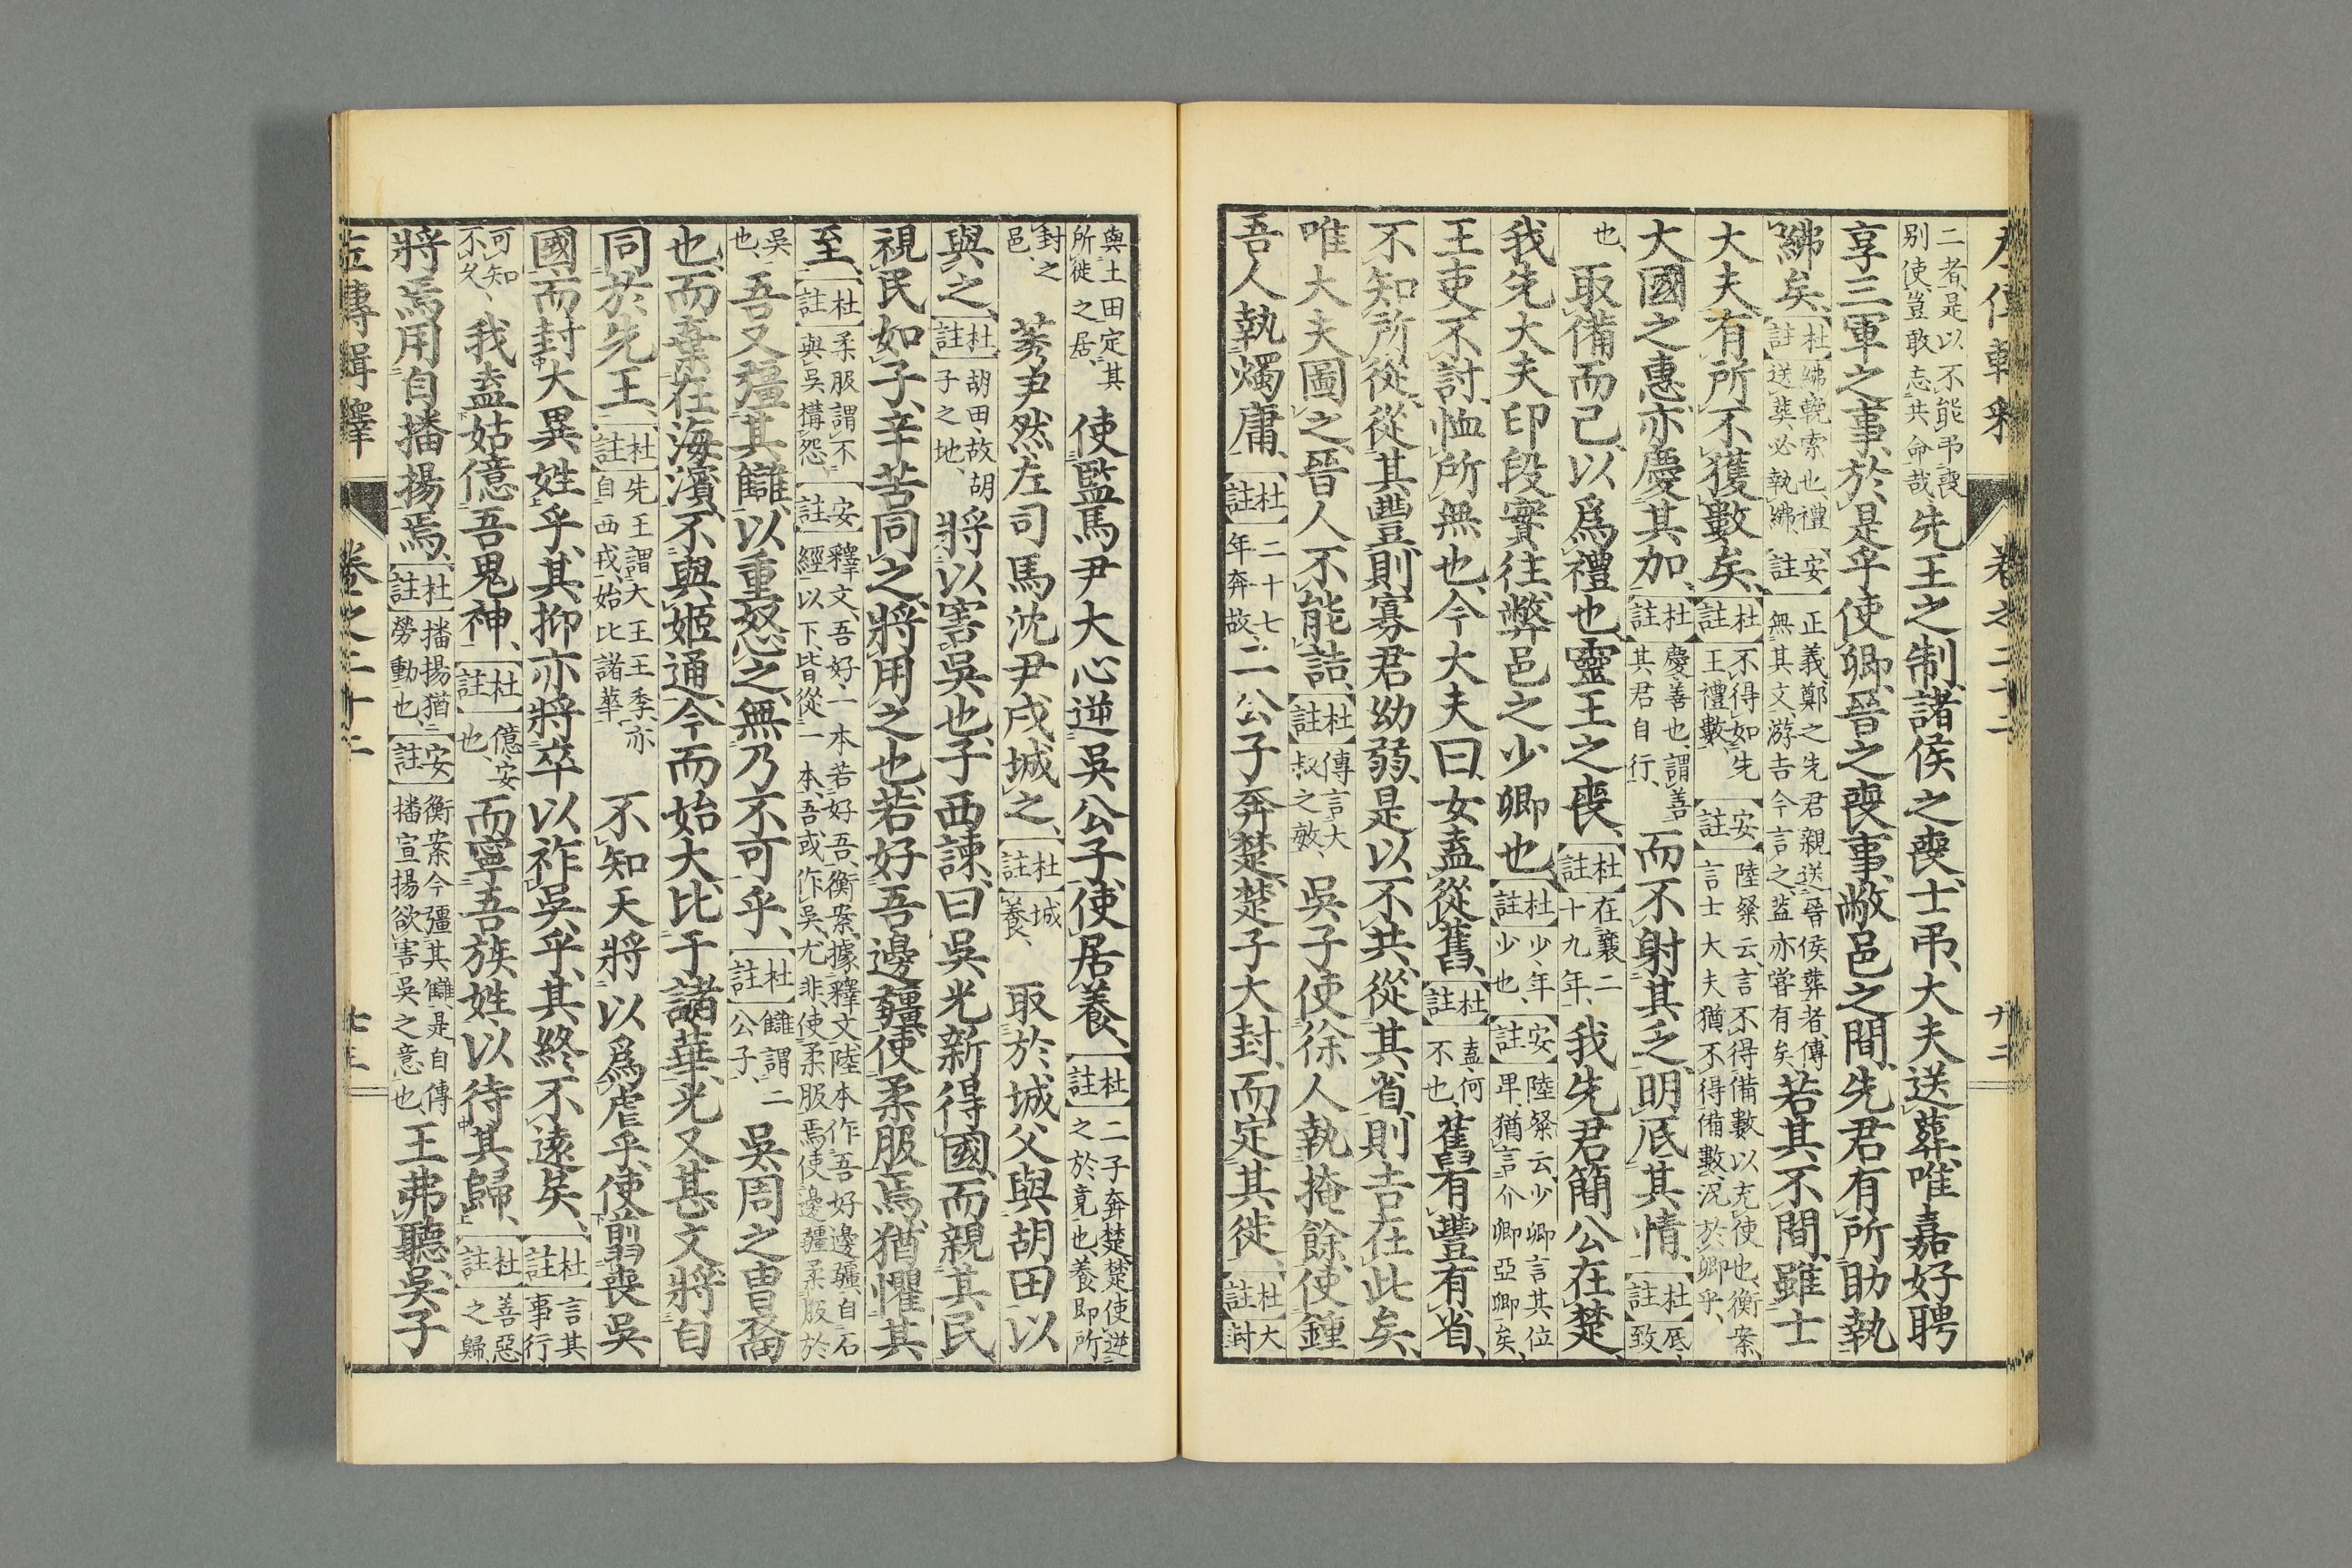 左傳輯釋 卷之二十二
二者、是以不能弔喪別使、豈敢忘共命哉、先王之制、諸侯之喪、士弔、大夫送葬、唯嘉好聘
享三軍之事、於是乎使卿、晉之喪事、敝邑之間、先君有所助執
紼矣、杜註紼、輓索也、禮送葬必執紼、安註正義、鄭之先君、親送晉侯葬者、傳無其文、游吉今言之、蓋亦嘗有矣、若其不間、雖士
大夫、有所不獲數矣、杜註不得如先王禮數、安註陸粲云、言不得備數以充使也、衡案、言士大夫猶不得備數、況於卿乎、
大國之惠、亦慶其加、杜註慶、善也、謂善其君自行、而不射其乏、明厎其情、杜註厎、致
也、取備而已、以爲禮也、靈王之喪、杜註在襄二十九年、我先君簡公在楚、
我先大夫印段實往、弊邑之少卿也、杜註少、年少也、安註陸粲云、少卿言其位卑、猶言介卿亞卿矣、
王吏不討、恤所無也、今大夫曰、女盍從舊、杜註盍、何不也、舊有豐有省、
不知所從、從其豐、則寡君幼弱、是以不共、從其省、則吉在此矣、
唯大夫圖之、晉人不能詰、杜註傳言大叔之敏、吳子使徐人執掩餘、使鍾
吾人執燭庸、杜註二十七年奔故、二公子奔楚、楚子大封、而定其徙、杜註大封
與土田、定其所徙之居、使監馬尹大心逆吳公子、使居養、杜註二子奔楚、楚使逆之於竟也、養即所
封之邑、莠尹然、左司馬沈尹戌城之、杜註城養、取於城父與胡田以
與之、杜註胡田、故胡子之地、將以害吳也、子西諫曰、吳光新得國、而親其民、
視民如子、辛苦同之、將用之也、若好吾邊疆、使柔服焉、猶懼其
至、杜註柔服、謂不與吳構怨、安註釋文、吾好、一本若好吾、衡案、據釋文、陸本作吾好邊疆、自石經以下、皆從一本、吾或作吳、尤非、使柔服焉、使邊疆柔服於
吳也、吾又彊其讎、以重怒之、無乃不可乎、杜註讎、謂二公子、吳周之冑裔
也、而棄在海濱、不與姬通、今而始大、比于諸華、光又甚文、將自
同於先王、杜註先王、謂大王王季、亦自西戎、始比諸華、不知天將以爲虐乎、使翦喪吳
國、而封大異姓乎、其抑亦將卒以祚吳乎、其終不遠矣、杜註言其事行
可知不久、我盍姑億吾鬼神、杜註億、安也、而寧吾族姓、以待其歸、杜註善惡之歸、
將焉用自播揚焉、杜註播揚、猶勞動也、安註衡案、今彊其讎、是自傳播宣揚欲害吳之意也、王弗聽、吳子
左傳輯釋 卷之二十二 七三